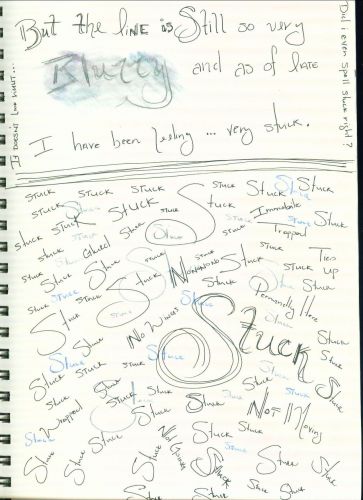 But the line is Still so very
Blurry and as of late
I have been feeling ... very stuck.
Did i even spell stuck right?
It doesn't look right...
Stuck Stuck Stuck Stuck Stuck Stuck
Stuck Stuck Stuck Stuck Immobile Stuck
Stuck Stuck Stuck Stuck Trapped
Stuck Glued Stuck Stuck Tied
Stuck Stuck Nonononono Stuck Stuck up
Stuck Stuck Stuck Stuck Permanently Here
Stuck Stuck No Wings Stuck Stuck
Stuck Stuck Stuck Stuck
Stuck Stuck Stuck Stuck Stuck
Wrapped Stuck Stuck Stuck Not Moving
Stuck Stuck Stuck Stuck Stuck
Stuck Stuck Stuck Stuck Stuck Stuck
Stuck Stuck